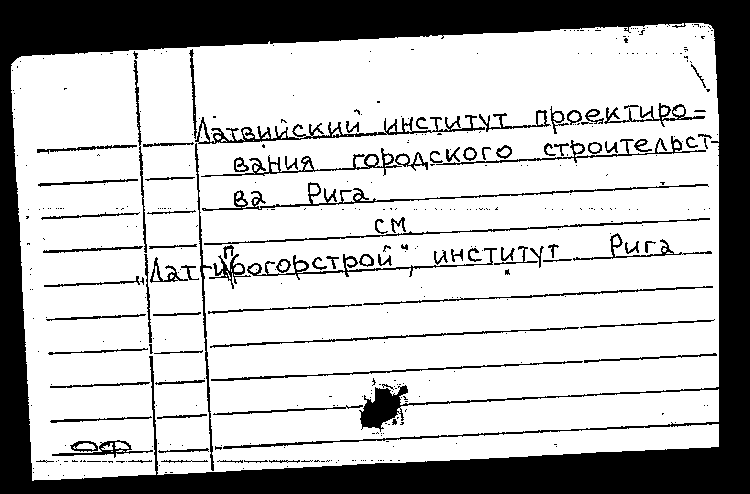 Латвийский институт проектиро=
вания городского строительст-
ва Рига.
см.
"Латгипрогорстрой", институт Рига